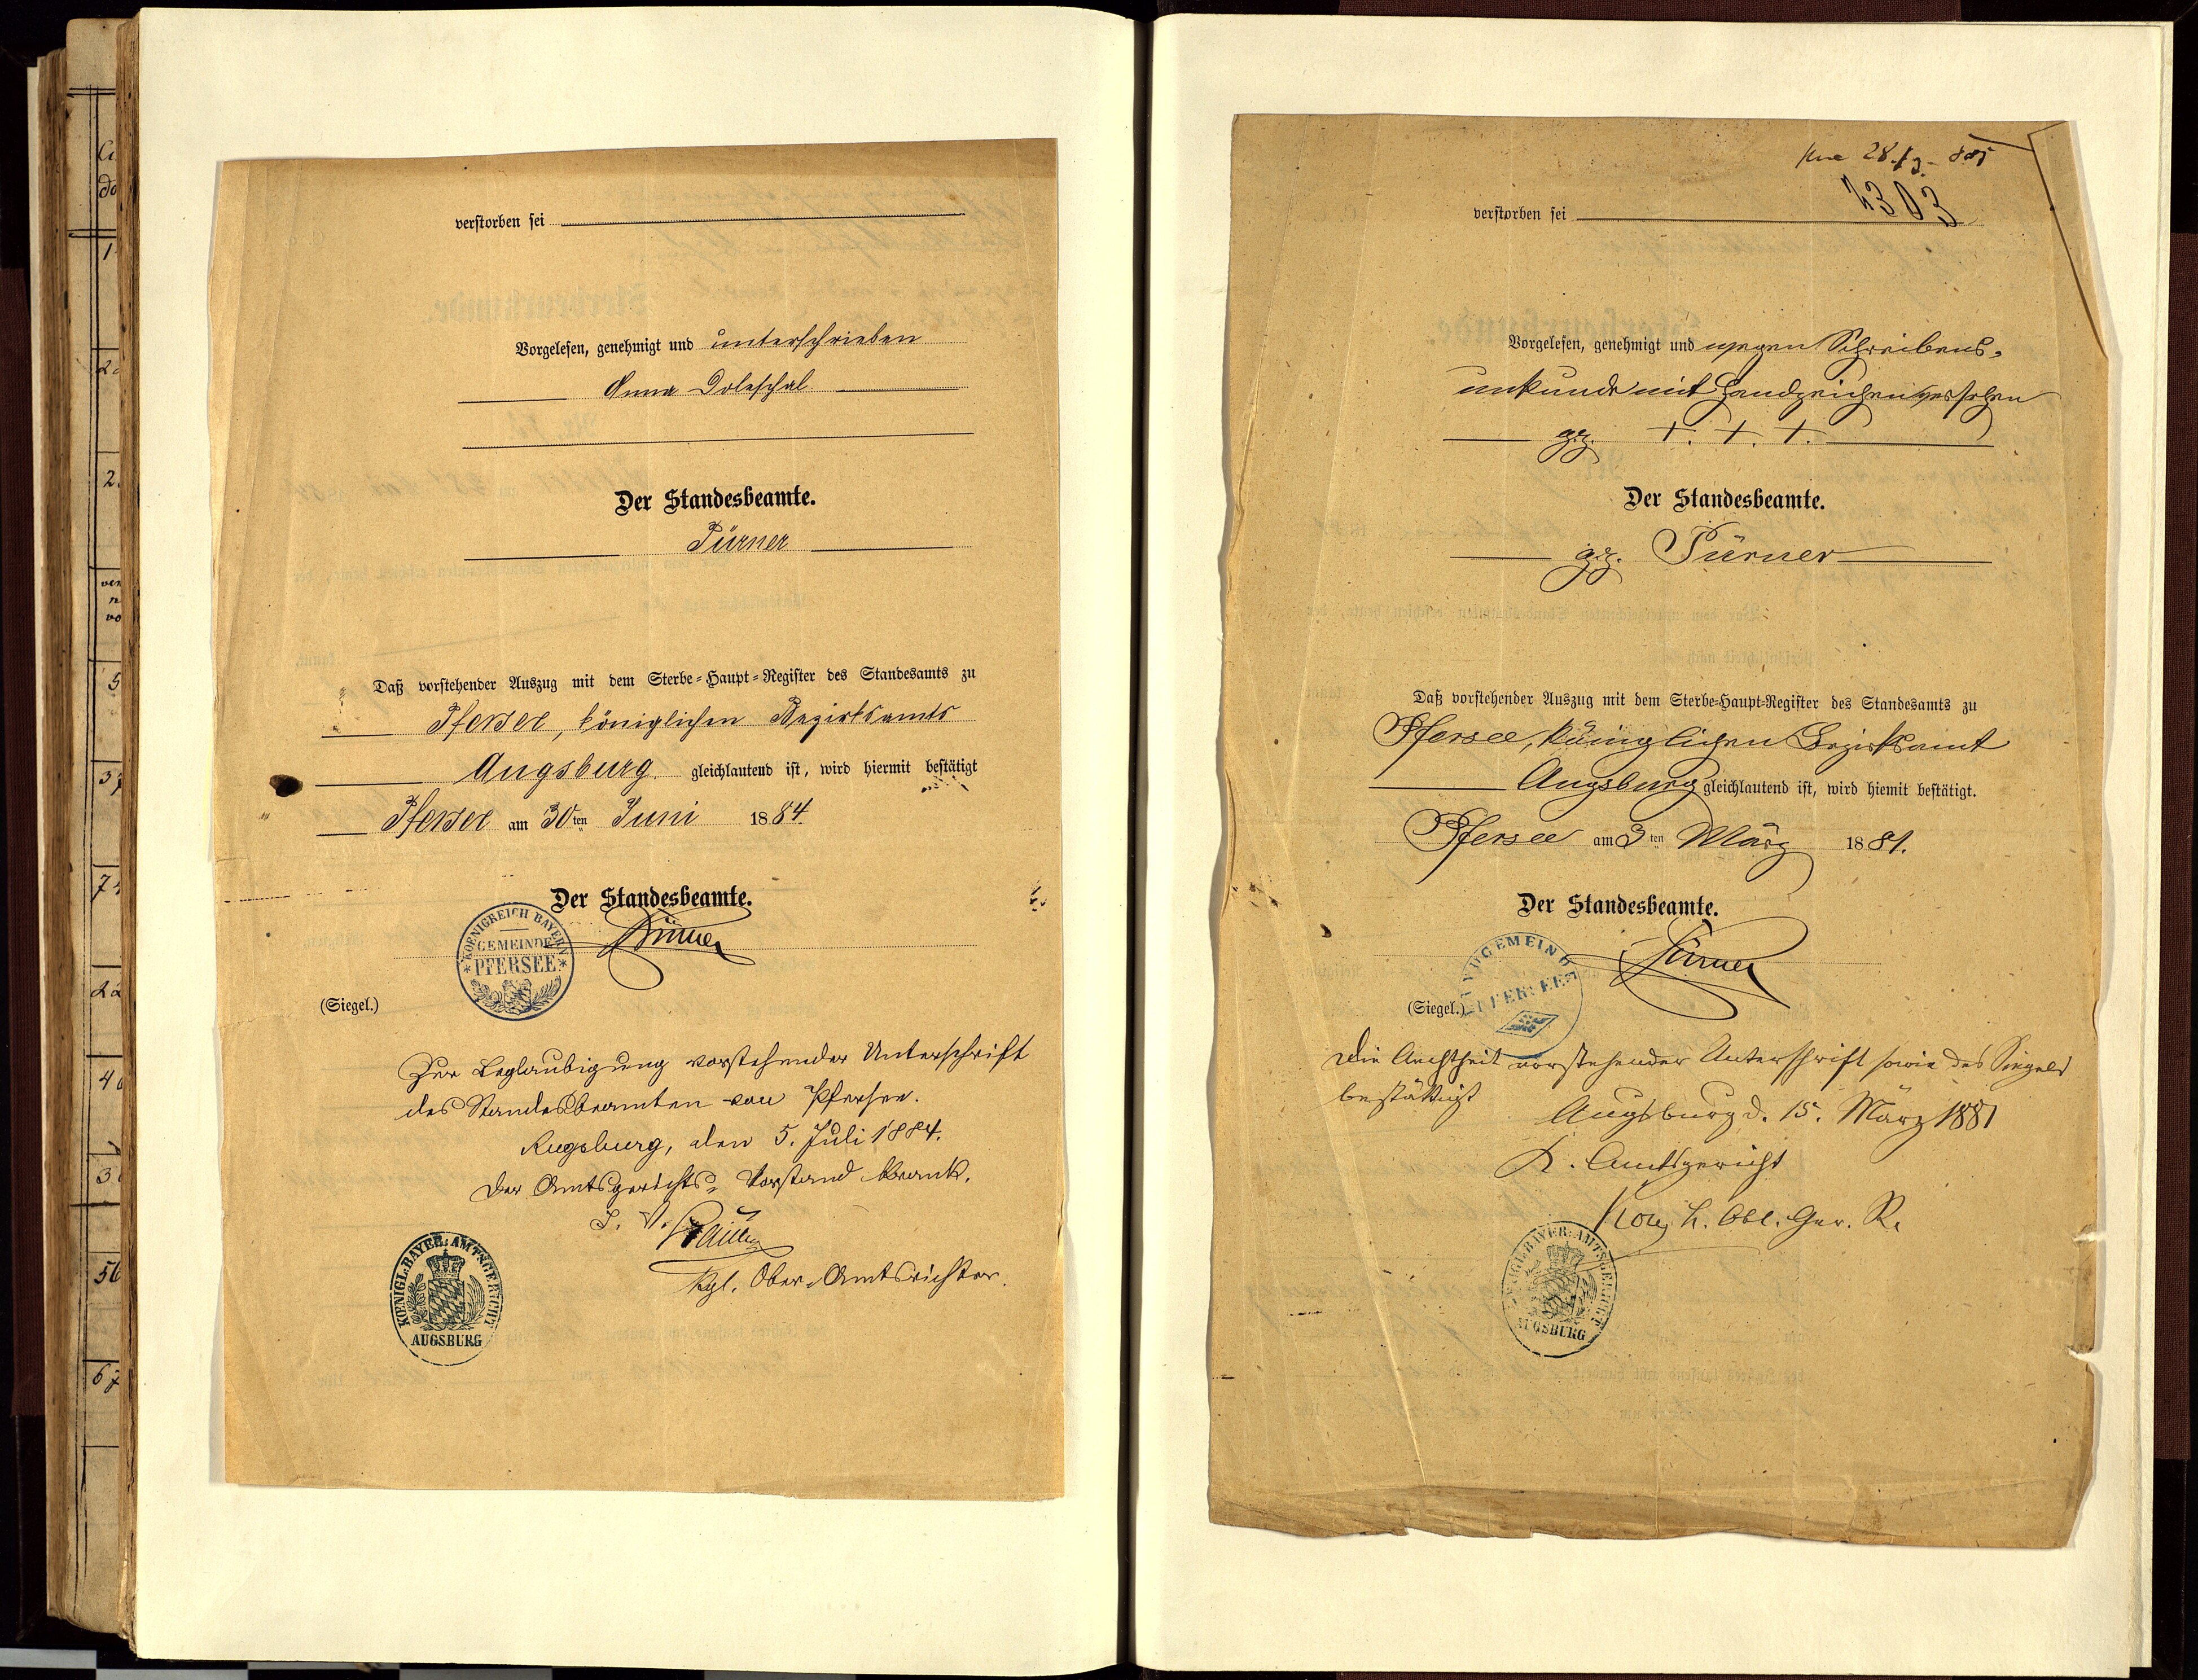 verstorben sei
Vorgelesen, genehmigt und unterschrieben
Anna Doleschal
Der Standesbeamte.
Pürner
Daß vorstehender Auszug mit dem Sterbe-Haupt-Register des Standesamts zu
Pfersee, königlichen Bezirksamts
Augsburg gleichlautend ist, wird hiermit bestätigt
Pfersee am 30ten Juni 1884.
Der Standesbeamte.
KOENIGREICH BAYERN
GEMEINDE
*PFERSEE*
Pürner
(Siegel.)
Zur Beglaubigung vorstehender Unterschrift
des Standesbeamten von Pfersee.
Augsburg, den 5. Juli 1884.
Der Amtsgerichts-Vorstand krank.
I. V.
Kgl. Ober-Amtsrichter.
KOENIGL. BAYER. AMTSGERICHT
AUGSBURG
28. 885
4303
verstorben sei
Vorgelesen, genehmigt und wegen Schreibens-
unkunde mit Handzeichen versehen
gez. +. +. +.
Der Standesbeamte.
gez. Pürner
Daß vorstehender Auszug mit dem Sterbe-Haupt-Register des Standesamts zu
Pfersee, königlichen Bezirksamt
Augsburg gleichlautend ist, wird hiemit bestätigt.
Pfersee am 3ten März 1881.
Der Standesbeamte.
LANDGEMEINDE
PFERSEE
Pürner
(Siegel.)
Die Aechtheit vorstehender Unterschrift sowie des Siegels
bestättigt
Augsburg d. 15. März 1881
K. Amtsgericht
k. Obl. Ger. R.
KOENIGL. BAYER. AMTSGERICHT
AUGSBURG